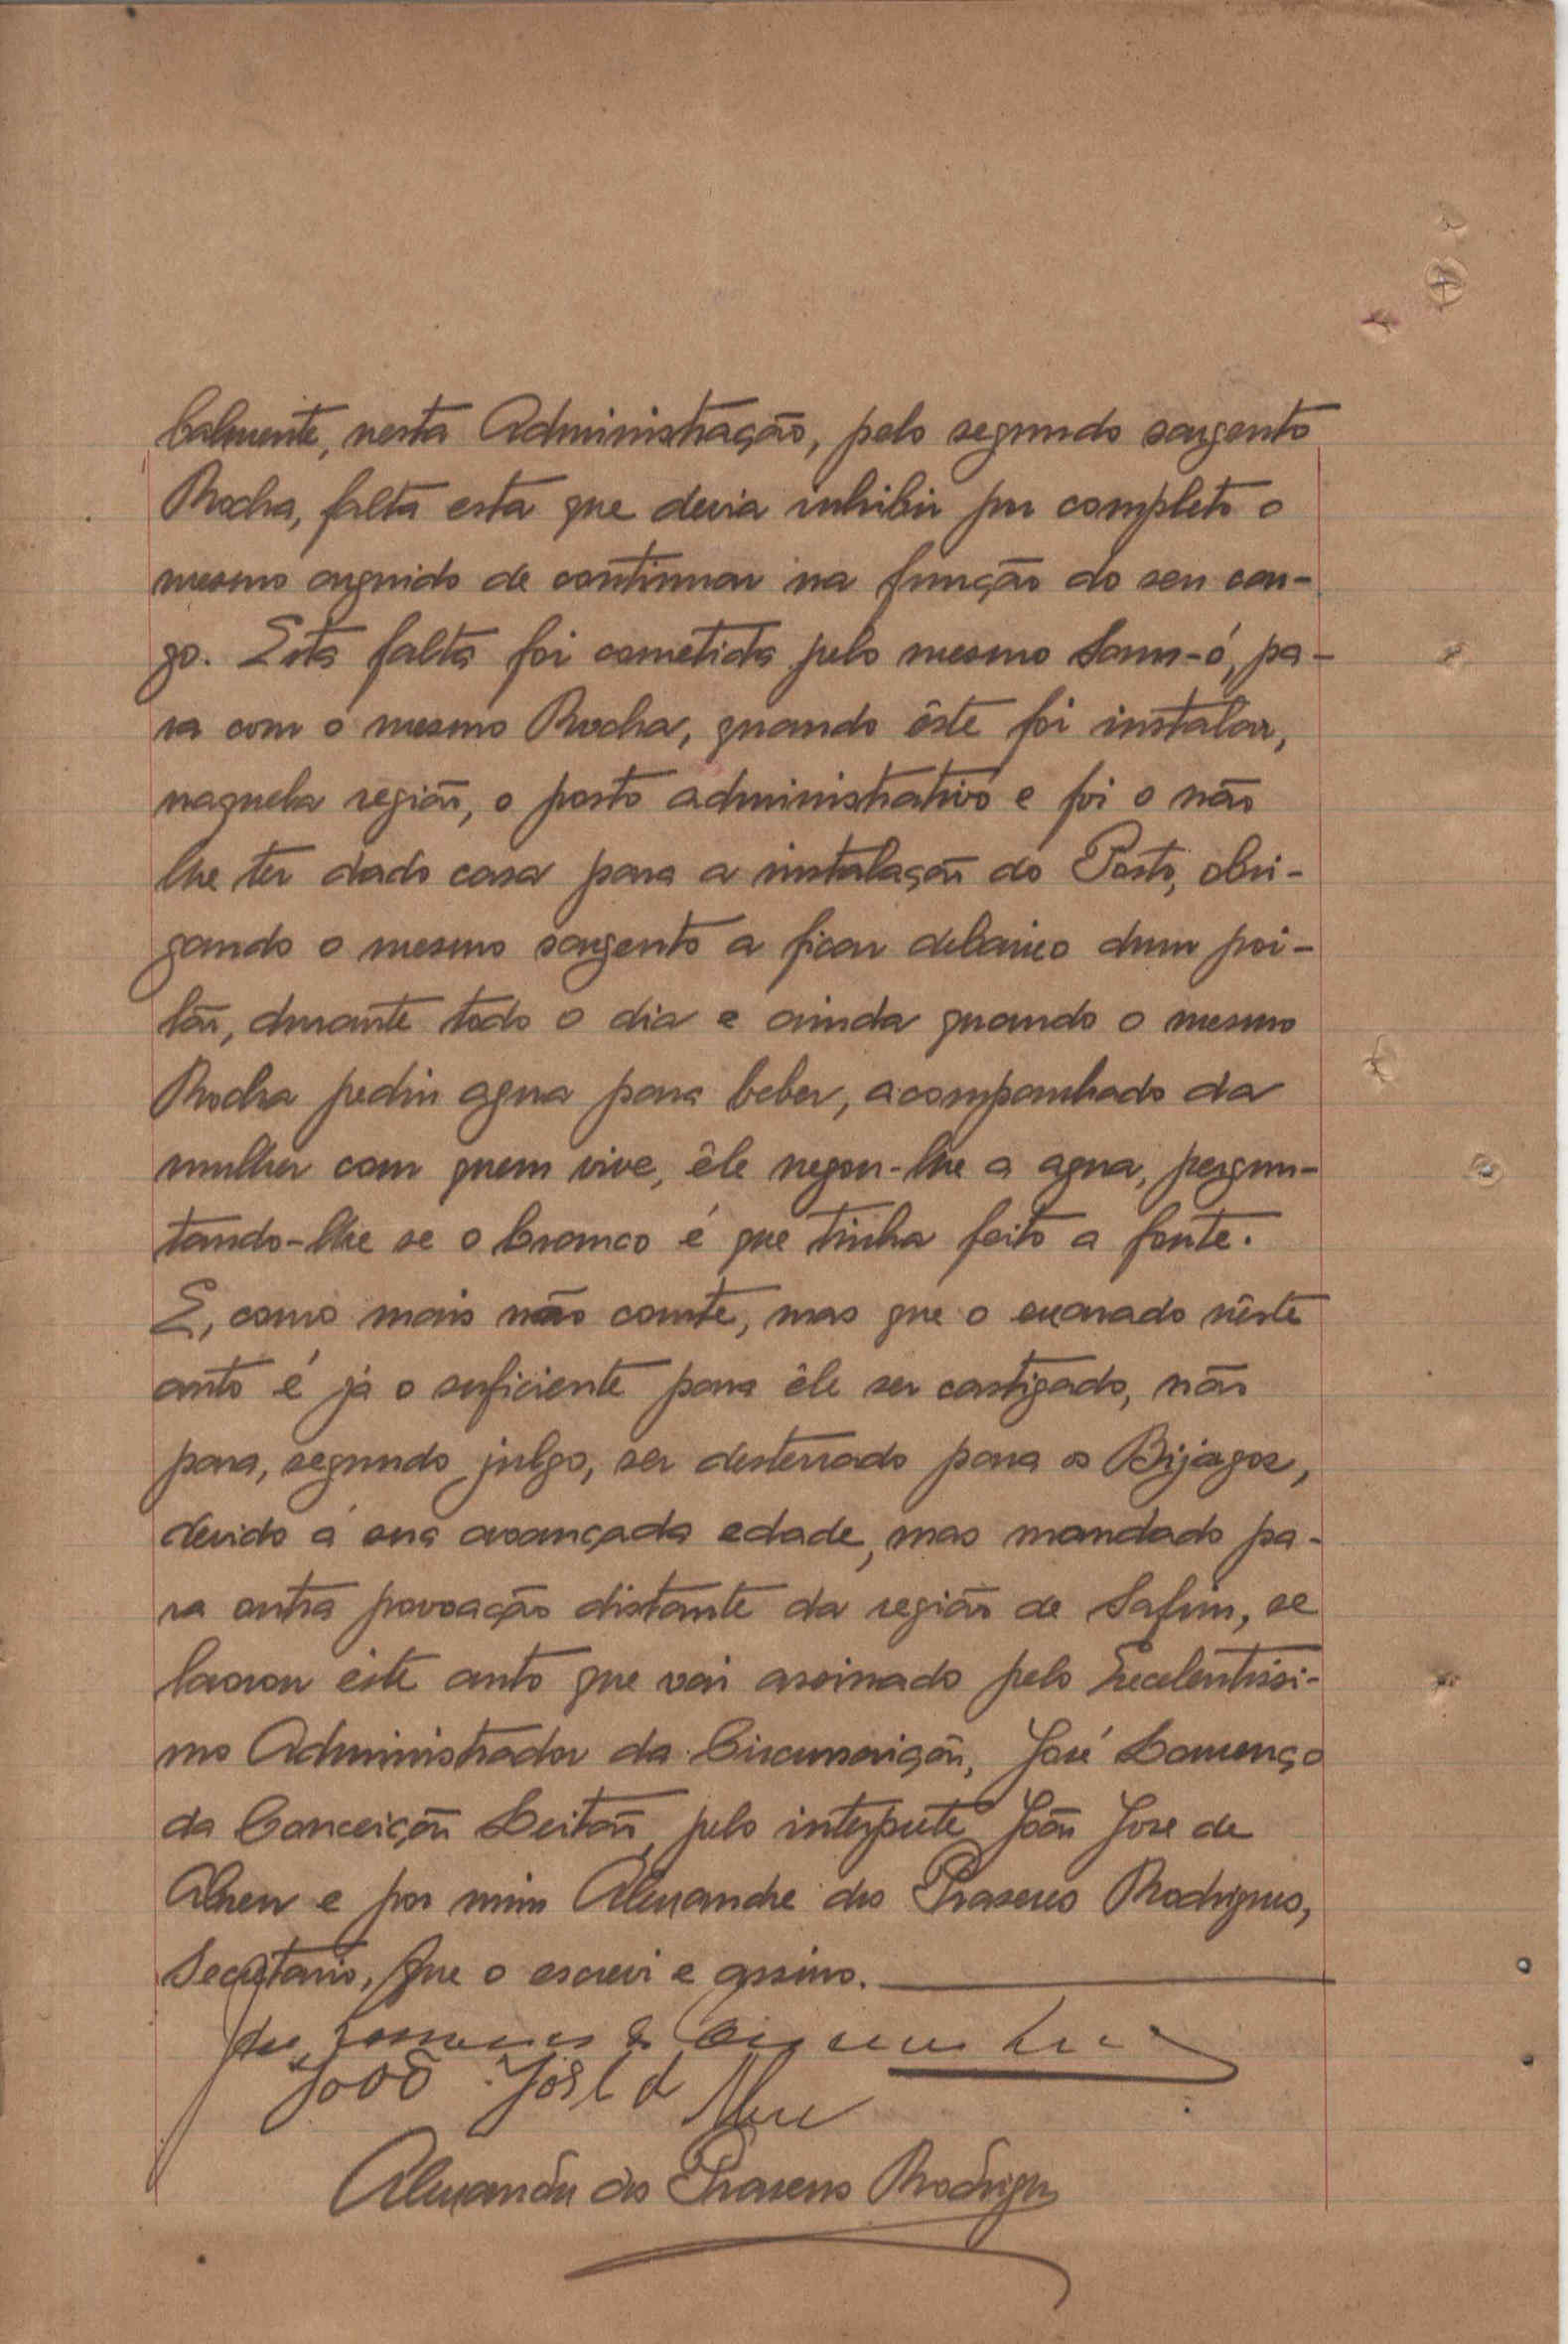 balmente, nesta Administração, pelo segundo sargento
Rocha, falta esta que devia inhibir por completo o
mesmo arguido de continuar na função do seu car-
go. Esta falta foi cometida pelo mesmo Sam-ó, pa-
ra com o mesmo Rocha, quando êste foi instalar,
naquela região, o posto administrativo e foi o não
lhe ter dado casa para a instalação do Posto, obri-
gando o mesmo sargento a ficar debaixo dum poi-
lão, durante todo o dia e ainda quando o mesmo
Rocha pediu agua para beber, acompanhado da
mulher com quem vive, êle negou-lhe a agua, pergun-
tando-lhe se o branco é que tinha feito a fonte.
E, como mais não conste, mas que o exarado nêste
auto é já o suficiente para êle ser castigado, não
para, segundo julgo, ser desterrado para os Bijagoz,
devido á sua avançada edade, mas mandado pa-
ra outra povoação distante da região de Safim, se
lavrou êste auto que vai assinado pelo Excelentissi-
mo Administrador da Circunscrição, José Lourenço
da Conceição Leitão, pelo interprete João José de
Abreu e por mim Alexandre dos Praseres Rodrigues,
Secretario, que o escrevi e assino.
João José d Abreu
Alexandre dos Praseres Rodrigues